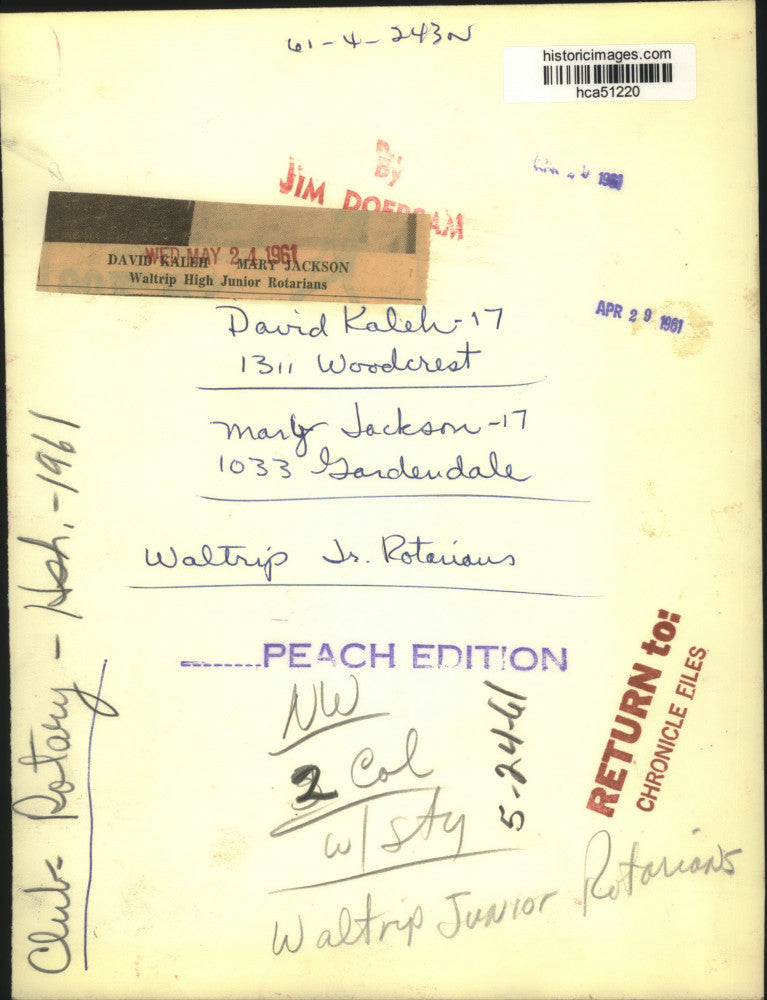 61-4-243N
historicimages.com
hca51220
By
JIM DOERSAM
1961
WED MAY 24 1961
DAVID KALEH MARY JACKSON
Waltrip High Junior Rotarians
APR 29 1961
David Kaleh-17
1311 Woodcrest
Mary Jackson-17
1033 Gardendale
Waltrip Jr. Rotarians
PEACH EDITION
NW
2 Col
w/sty
5-24-61
Waltrip Junior Rotarians
RETURN to:
CHRONICLE FILES
Clubs Rotary - Hsh. - 1961